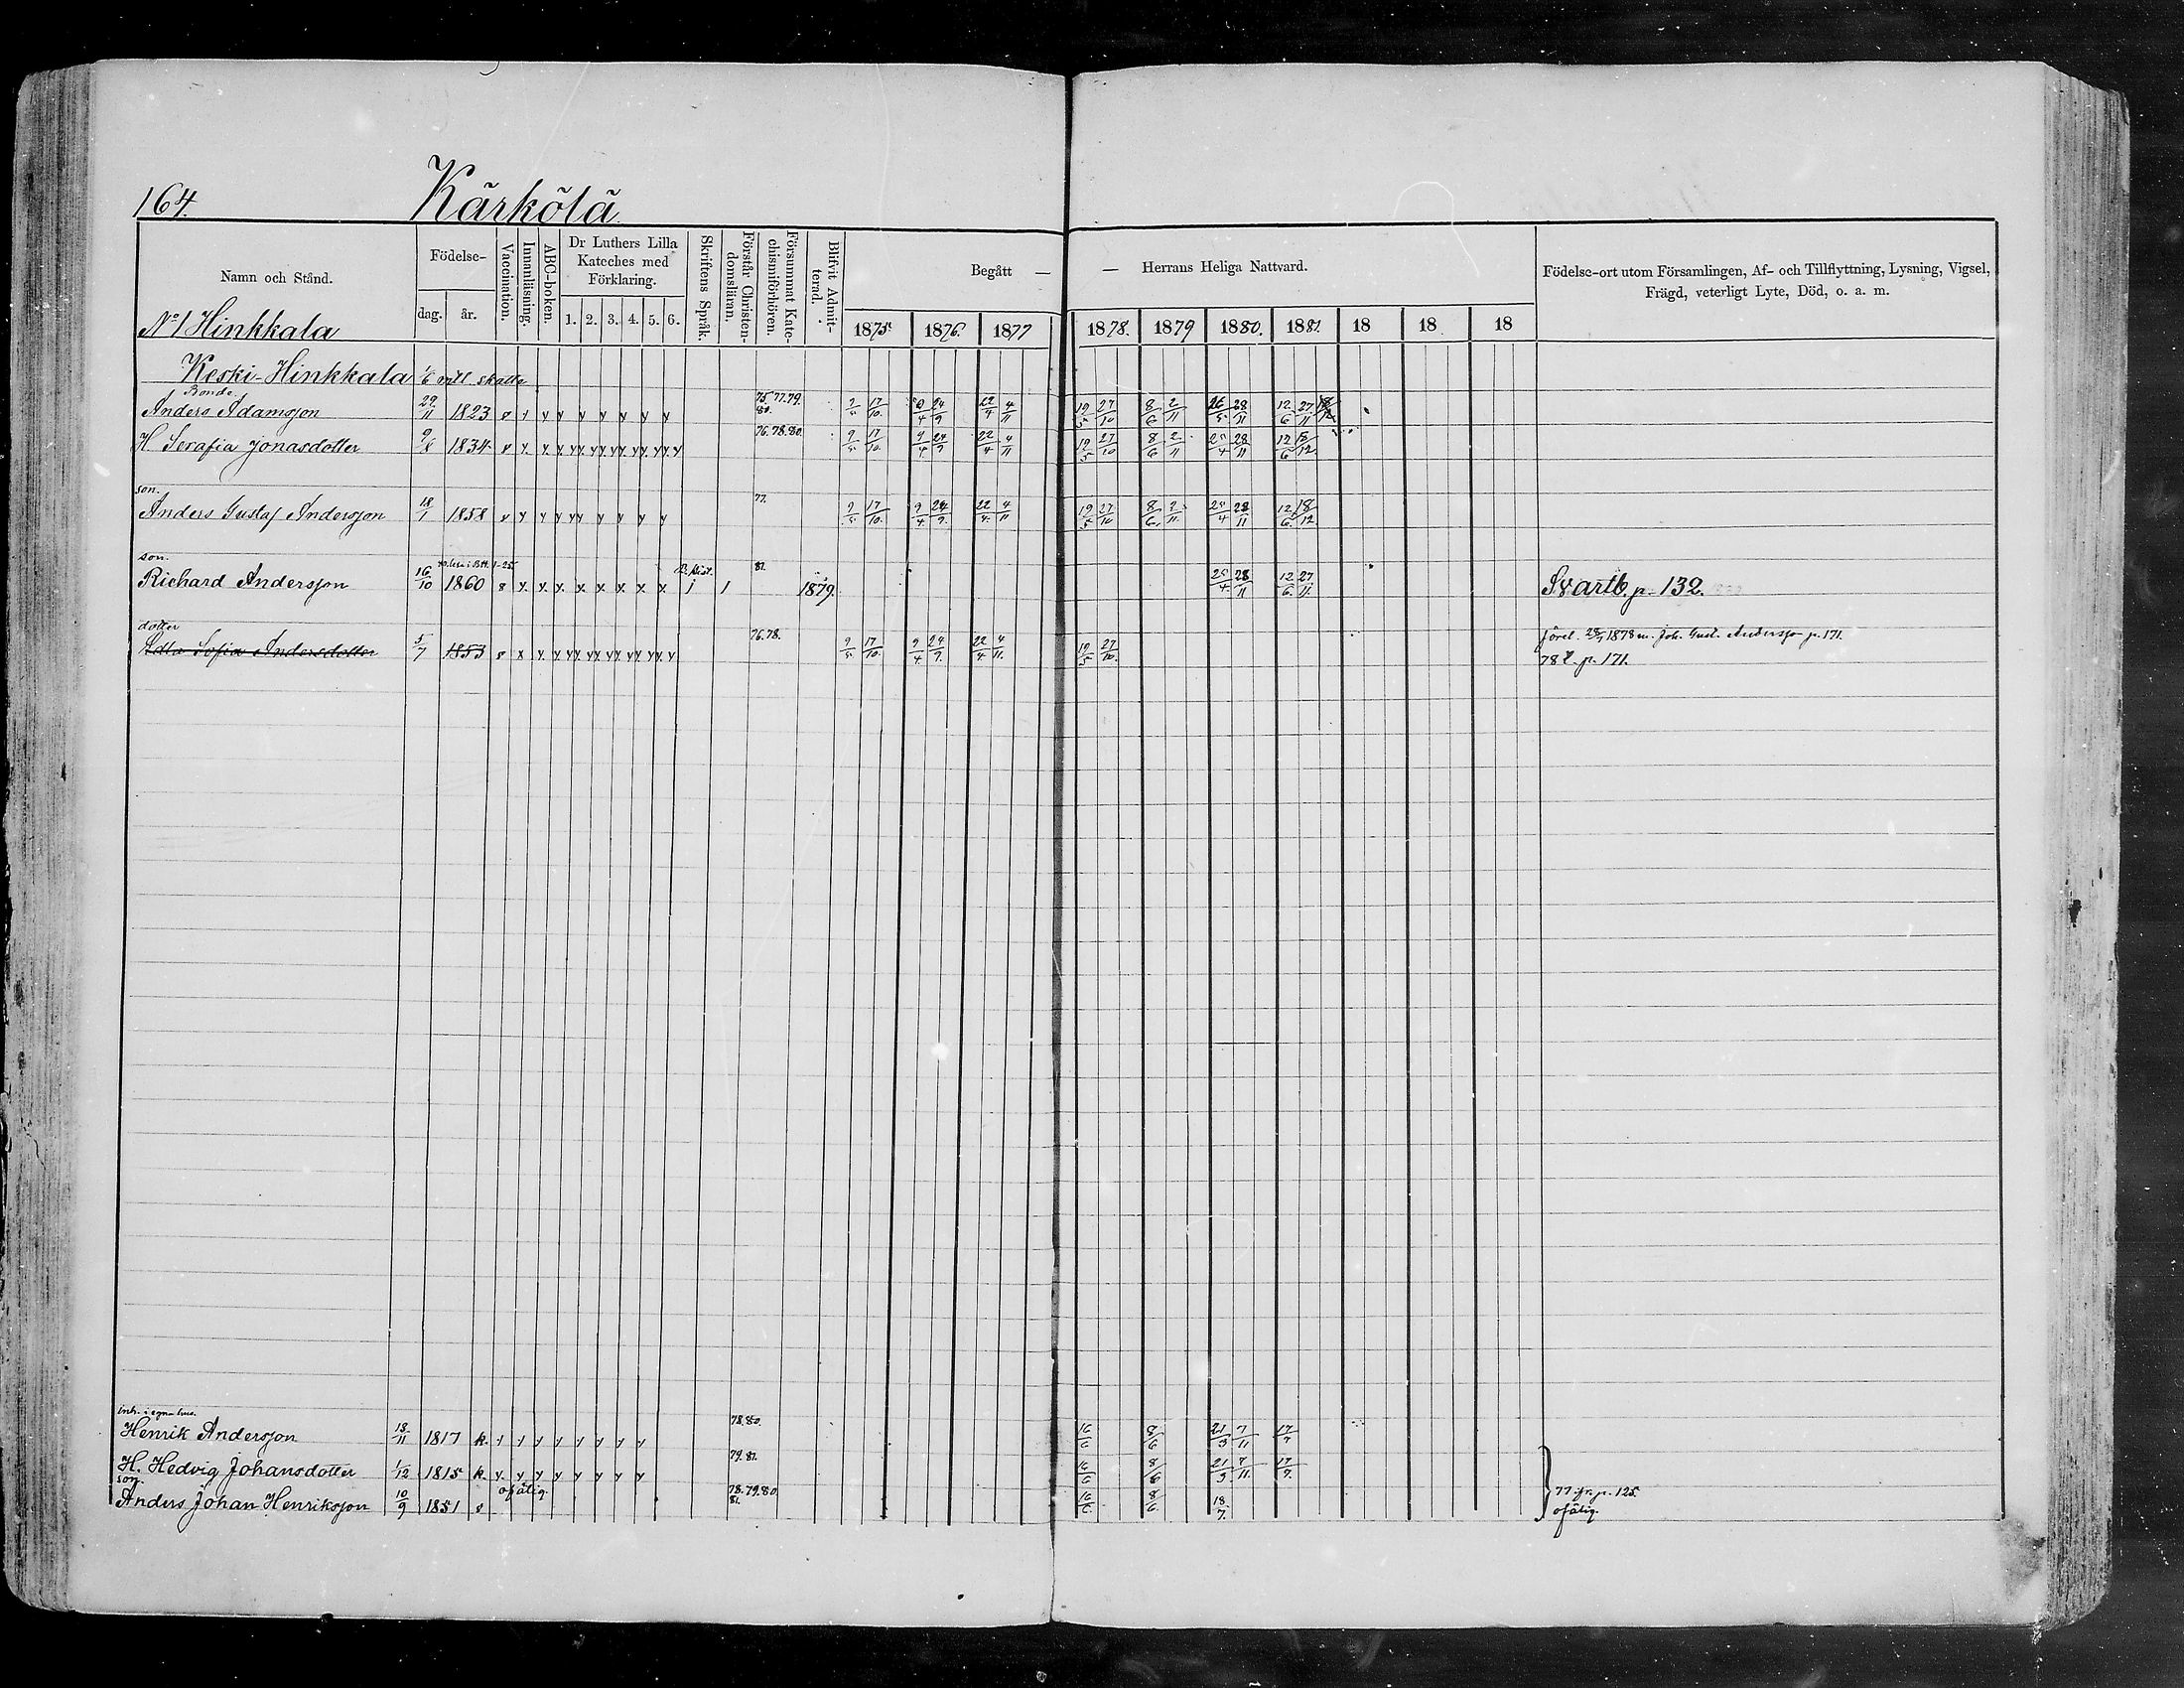 164. Kärkölä
Namn och Stånd. Födelse- dag. år. Vaccination. Innanläsning. ABC-boken. Dr Luthers Lilla Kateches med Förklaring. 1. 2. 3. 4. 5. 6. Skriftens Språk. Förstår Christendomsläran. Försummat Katechismiförhören. Blifvit Admitterad. Begått — — Herrans Heliga Nattvard. Födelse-ort utom Församlingen, Af- och Tillflyttning, Lysning, Vigsel, Frägd, veterligt Lyte, Död, o. a. m.
1875. 1876. 1877 1878. 1879 1880. 1881. 18 18 18
No 1 Hinkkala
Keski-Hinkkala 1/6 mtl skatte
Bonde
Anders Adamsson 29/11 1823 75. 77. 79. 80. 9/5 17/10. 9/4 24/9 22/4 4/11 19/5 27/10 8/6 2/11 25/5 28/11 12/6 27/11 18/12
H. Serafia Jonasdotter 1834 76. 78. 80. 9/5 17/10. 9/4 24/9 22/4 4/11 19/5 27/10 8/6 2/11 25/4 28/11 12/6
son.
Anders Gustaf Andersson 18/1 1858 77. 9/5 17/10. 9/4 24/9. 22/4. 4/11 19/5 27/10 8/6. 2/11. 25/4 28/11 12/6. 18/12
son.
Richard Andersson 16/10 1860 81. 1879. 25/4. 28/11 12/6. 27/11. Svartb. p. 132.
dotter
Edla Sofia Andersdotter 5/7 1853 76. 78. 9/5 17/10. 9/4 24/9. 22/4. 4/11. 19/5 27/10. 1878 m. Joh. Gust. Andersson p. 171.
78 t. p. 171.
inh. i egna hus.
Henrik Andersson 18/11 1817 k. 78. 80. 16/6 8/6 21/3 7/11 17/7
H. Hedvig Johansdotter 1/12 1815 k. 79. 81. 16/6 8/6 21/3. 7/11. 17/7.
son. ofätig.
Anders Johan Henriksson 10/9 1851 78. 79. 80. 81. 16/6 8/6 18/7. 77. fr. p. 125.
ofätig.